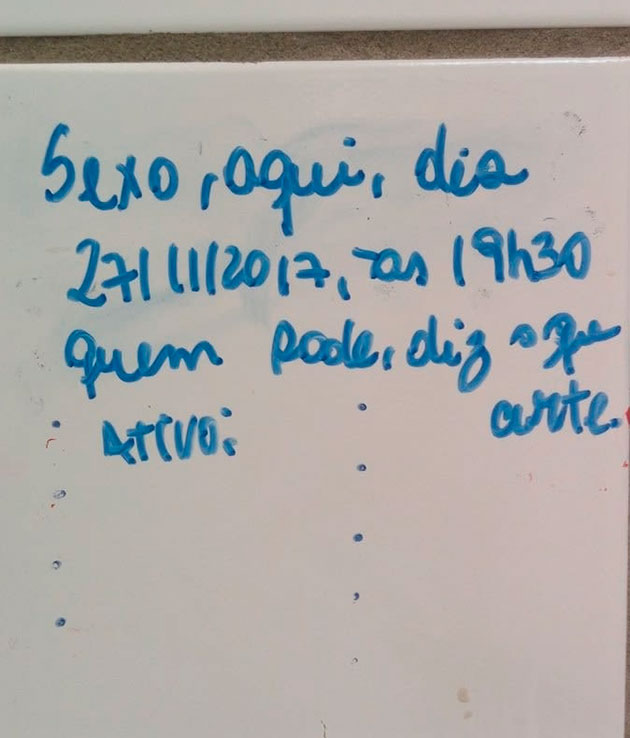 Sexo, aqui, dia
27/11/2017, as 19h30
quem pode, diz o que
curte.
Ativo: